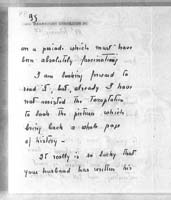 95
on a period which must have
been absolutely fascinating
I am looking forward to
read it, but, already I have
not resisted the temptation
to look the pictures which
bring back a whole page
of history -
It really is so lucky that
your husband has written his